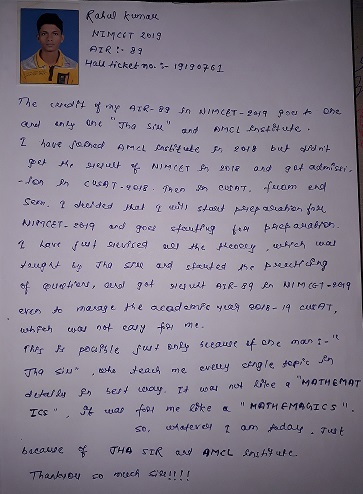 Rahul Kumar
NIMCET 2019
AIR :- 89
Hall ticket no. :- 19190761
The credit of my AIR-89 in NIMCET-2019 goes to one
and only one "Jha Sir" and AMCL Institute.
I have joined AMCL Institute in 2018 but didn't
get the result of NIMCET in 2018 and got admissi-
-ion in CUSAT-2018. Then in CUSAT, from end
sem. I decided that I will start preparation for
NIMCET-2019 and goes starting for preparation.
I have just revised all the theory, which was
taught by Jha Sir and started the practicing
of questions, and got result AIR-89 in NIMCET-2019
even to manage the academic year 2018-19 CUSAT,
which was not easy for me.
This is possible just only because of one man :- "
Jha Sir", who teach me every single topic in
details in best way. It was not like a "MATHEMAT
ICS", it was for me like a "MATHEMAGICS".
So, whatever I am today, Just
because of JHA SIR and AMCL Institute.
Thankyou so much sir!!!!